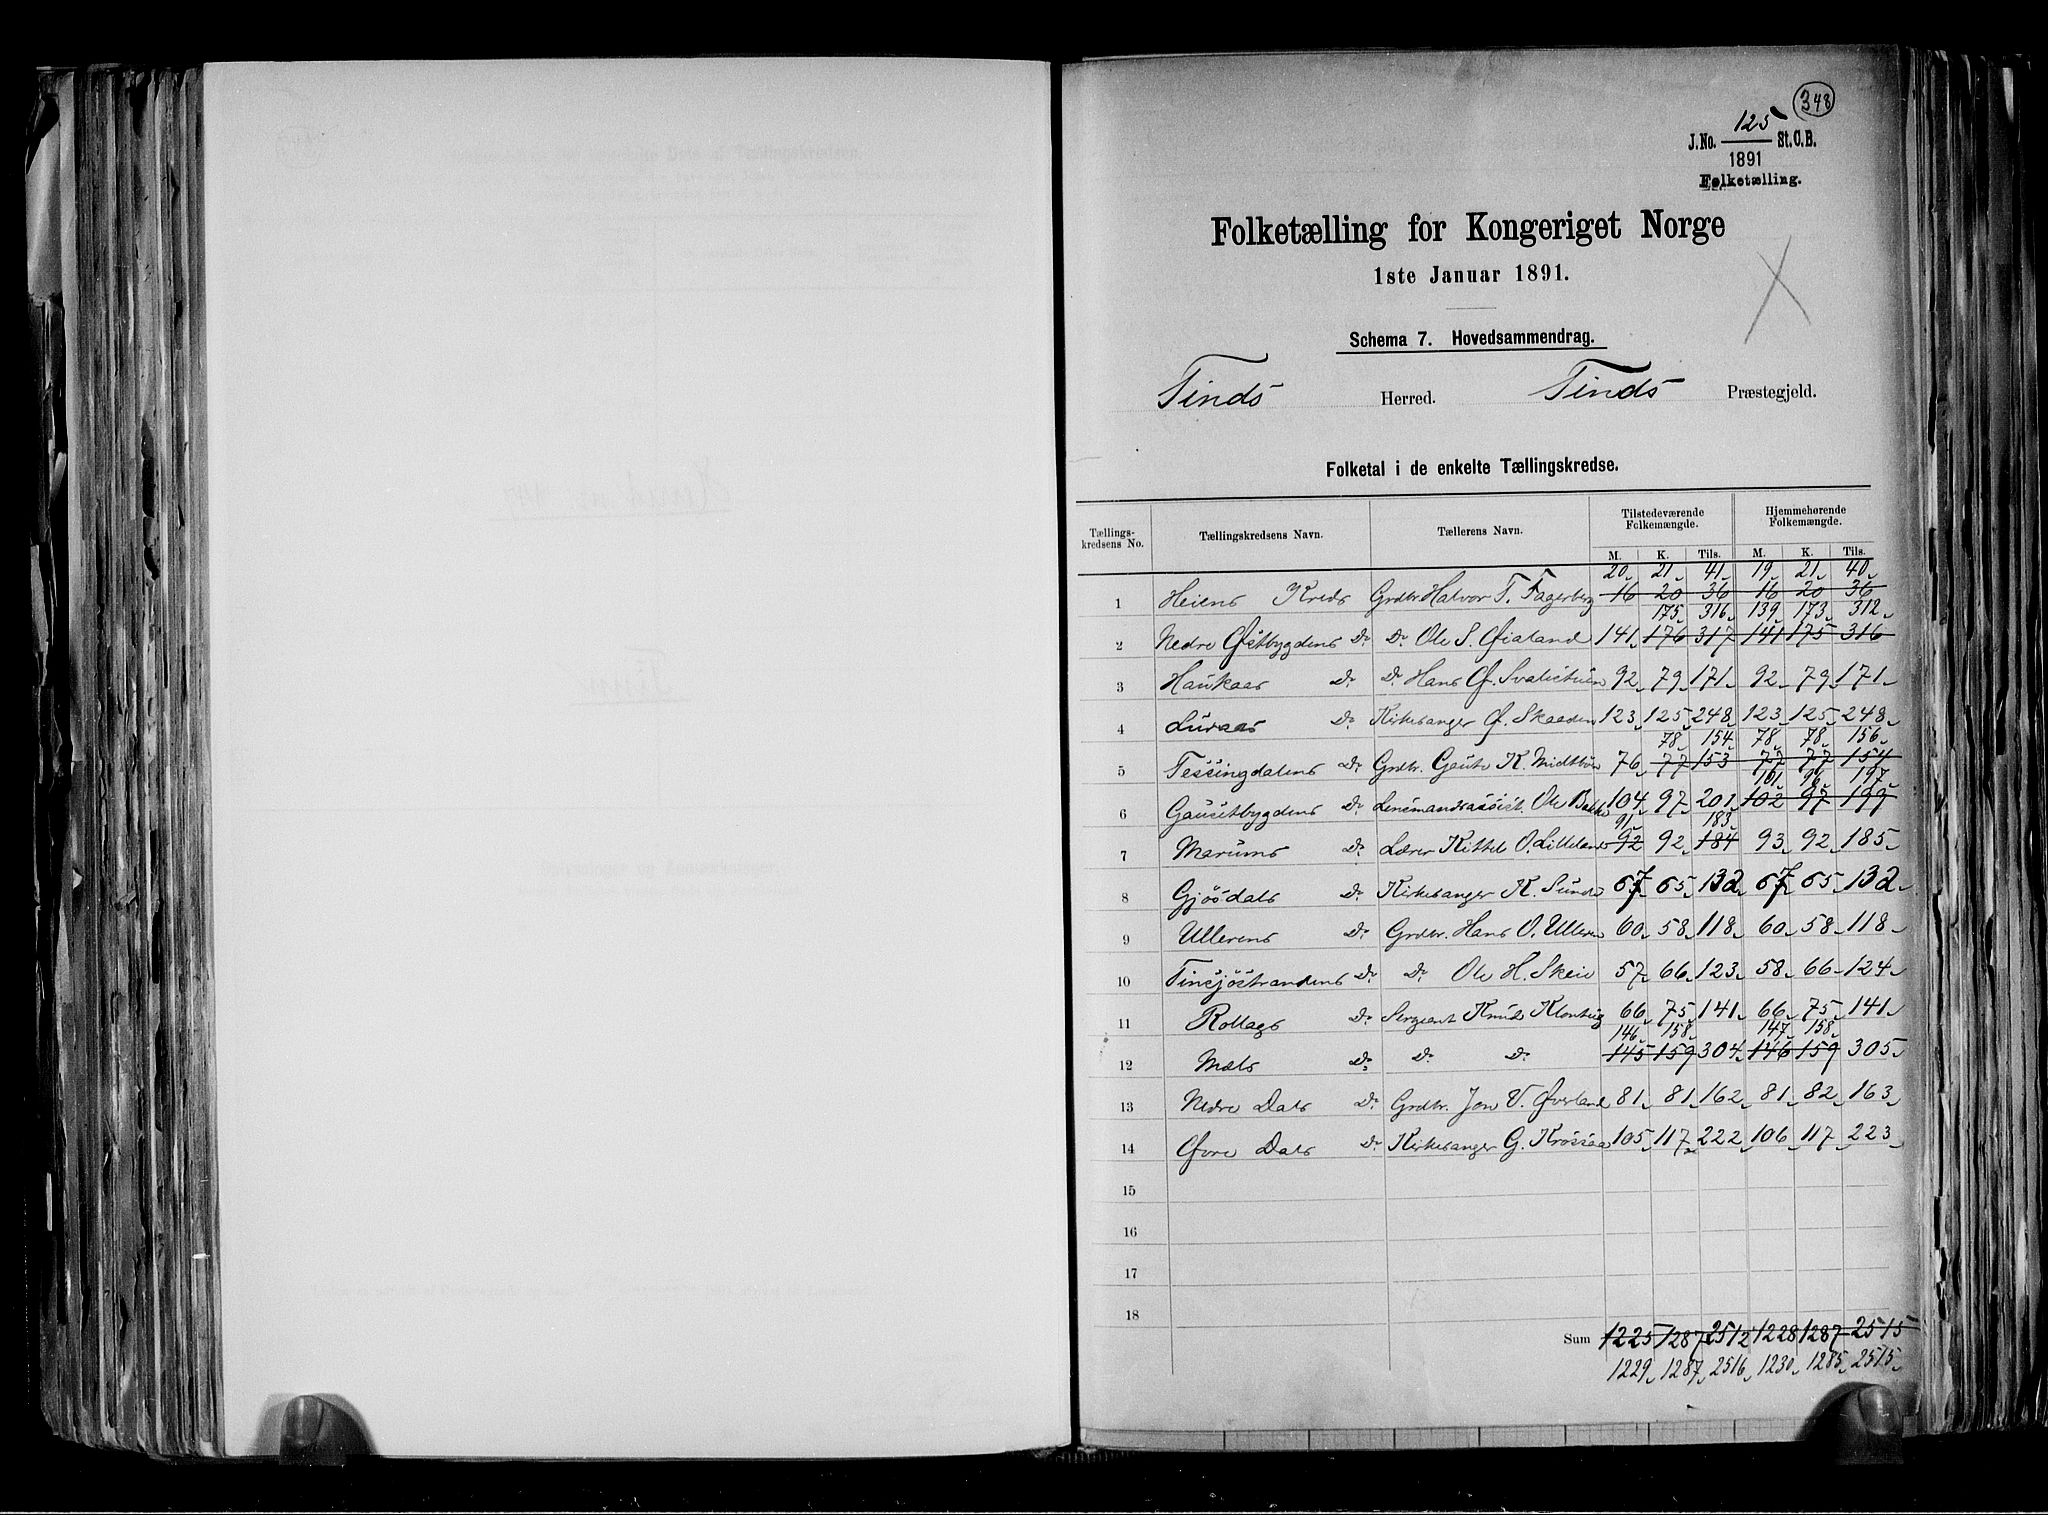 348
125
J. No. St. C. B.
1891
Folketælling.
Folketælling for Kongeriget Norge
1ste Januar 1891.
Schema 7. Hovedsammendrag.
Tinds Herred. Tinds Præstegjeld.
Folketal i de enkelte Tællingskredse.
Tællings-kredsens No. Tællingskredsens Navn. Tællerens Navn. Tilstedeværende Folkemængde. Hjemmehørende Folkemængde.
M. K. Tils. M. K. Tils.
20 21 41 19 21 40
1 Heiens Kreds Grdbr. Halvor T. Fagerberg 16 20 36 16 20 36
175 316 139 173 312
2 Nedre Østbygdens Do Do Ole S. Øialand 141 176 317 141 175 316
3 Haukaas Do Do Hans Ø. 92 79 171 92 79 171
4 Luraas Do Kirkesanger Ø. Skaaden 123 125 248 123 125 248
78 154 78 78 156
5 Tessingdalens Do Grdbr. Gaute K. Midtbøn 76 77 153 77 77 154
101 96 197
6 Gausetbygdens Do Lensmandsassist. Ole Bakke 104 97 201 102 97 199
91 183
7 Marums Do Lærer Kittel O. Lilleland 92 92 184 93 92 185
8 Gjøsdals Do Kirkesanger K. Sunde 67 65 132 67 65 132
9 Ullerens Do Grdbr. Hans O. Ulleren 60 58 118 60 58 118
10 Tinsjøstrandens Do Do Ole H. Skeie 57 66 123 58 66 124
11 Rollags Do Sergeant Knud 66 75 141 66 75 141
146 158 147 158
12 Mæls Do Do Do 145 159 304 146 159 305
13 Nedre Dals Do Grdbr. Jon V. Øverland 81 81 162 81 82 163
14 Øvre Dals Do Kirkesanger G. Krossaa 105 117 222 106 117 223
15
16
17
18
Sum 1225 1287 2512 1228 1287 2515
1229 1287 2516 1230 1285 2515